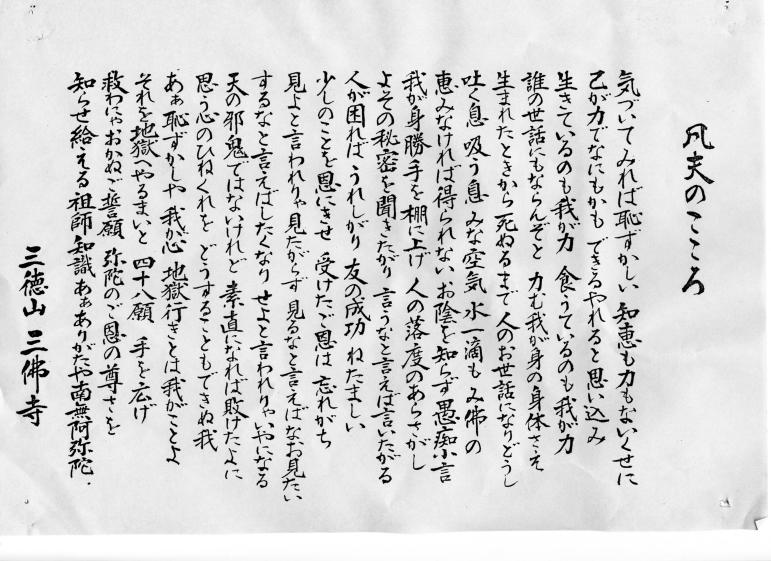 凡夫のこころ
気づいてみれば恥ずかしい 知恵も力もないくせに
己が力でなにもかも できるやれると思い込み
生きているのも我が力 食うているのも我が力
誰の世話にもならんぞと 力む我が身の身体さえ
生まれたときから死ぬるまで 人のお世話になりどうし
吐く息 吸う息 みな空気 水一滴も み佛の
恵みなければ得られない お陰を知らず 愚痴小言
我が身勝手を棚に上げ 人の落度のあらさがし
よその秘密を聞きたがり 言うなと言えば言いたがる
人が困れば うれしがり 友の成功 ねたましい
少しのことを恩にきせ 受けたご恩は 忘れがち
見よと言われりゃ見たがらず 見るなと言えばなお見たい
するなと言えばしたくなり せよと言われりゃいやになる
天の邪鬼ではないけれど 素直になれば敗けたよに
思う心のひねくれを どうすることもできぬ我
あゝ恥ずかしや 我が心 地獄行きとは我がことよ
それを地獄へやるまいと 四十八願 手を広げ
救わにゃおかぬご誓願 弥陀のご恩の尊さを
知らせ給える 祖師 知識 あゝありがたや南無阿弥陀.
三徳山 三佛寺